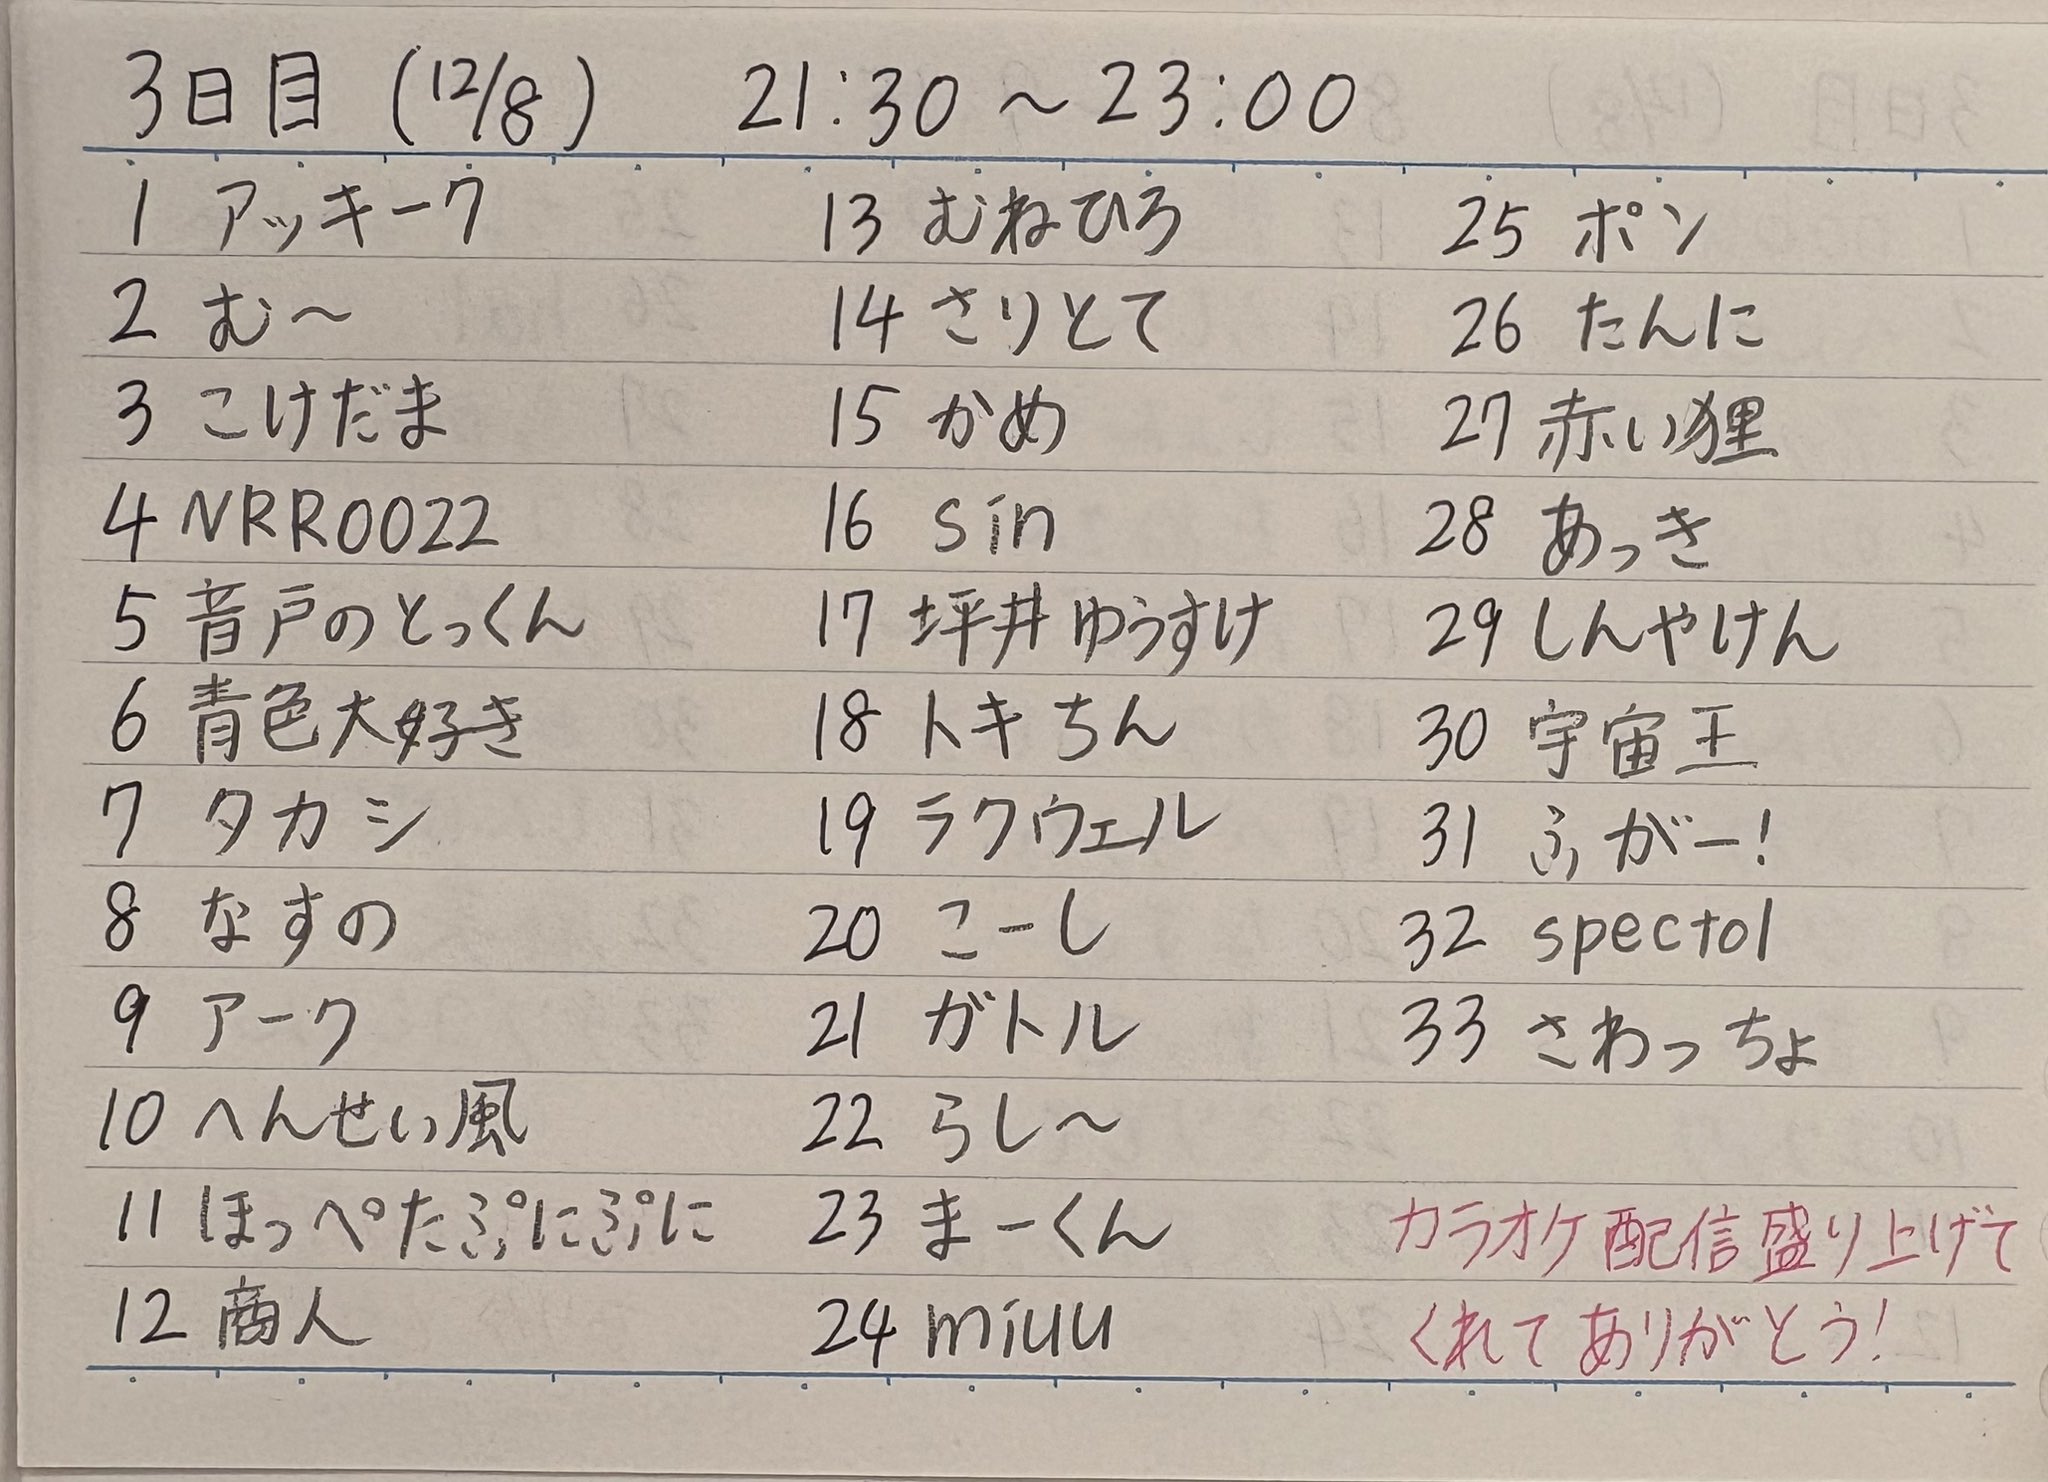 3日目 (12/8) 21:30～23:00
1 アッキーク
2 む～
3 こけだま
4 NRR0022
5 音戸のとっくん
6 青色大好き
7 タカシ
8 なすの
9 アーク
10 へんせい風
11 ほっぺたぷにぷに
12 商人
13 むねひろ
14 さりとて
15 かめ
16 sin
17 坪井ゆうすけ
18 トキちん
19 ラクウェル
20 こーし
21 ガトル
22 らし～
23 まーくん
24 miuu
25 ポン
26 たんに
27 赤い狸
28 あっき
29 しんやけん
30 宇宙王
31 ふがー!
32 spectol
33 さわっちょ
カラオケ配信盛り上げて
くれてありがとう!